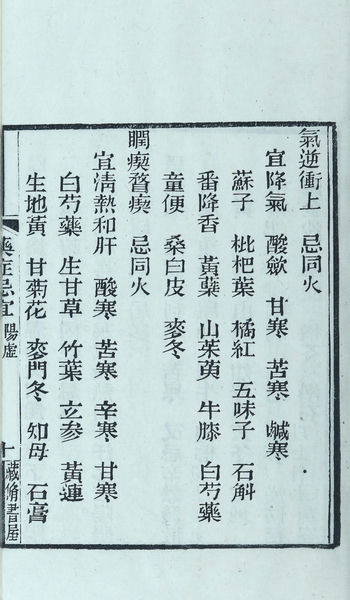 氣逆衝上　忌同火
宜降氣　酸斂　甘寒　苦寒　鹹寒
蘇子　枇杷葉　橘紅　五味子　石斛
番降香　黃蘗　山茱萸　牛膝　白芍藥
童便　桑白皮　麥冬
瞤瘈瞀瘈　忌同火
宜清熱和肝　酸寒　苦寒　辛寒　甘寒
白芍藥　生甘草　竹葉　玄參　黃連
生地黃　甘菊花　麥門冬　知母　石膏
藥症忌宜　陽虛　十　藏脩書屋